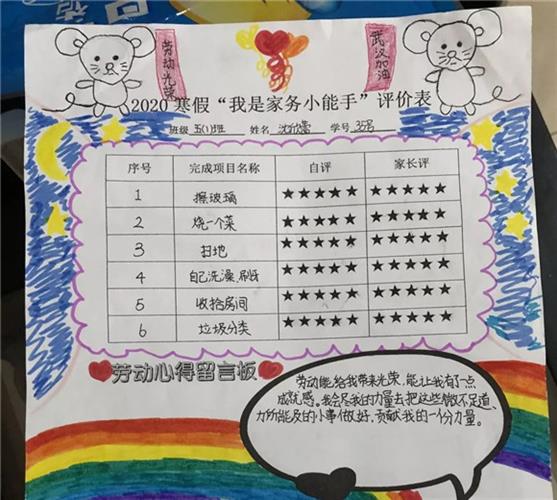 劳动光荣
武汉加油
2020寒假“我是家务小能手”评价表
班级 五(1)班 姓名 沈欣蕾 学号 35号
序号 完成项目名称 自评 家长评
1 擦玻璃 ★★★★★ ★★★★★
2 烧一个菜 ★★★★★ ★★★★★
3 扫地 ★★★★★ ★★★★★
4 自己洗澡、刷牙 ★★★★★ ★★★★★
5 收拾房间 ★★★★★ ★★★★★
6 垃圾分类 ★★★★★ ★★★★★
劳动心得留言板
劳动能给我带来光荣，能让我有了一点
成就感。我会尽我的力量去把这些微不足道、
力所能及的小事做好，贡献我的一份力量。